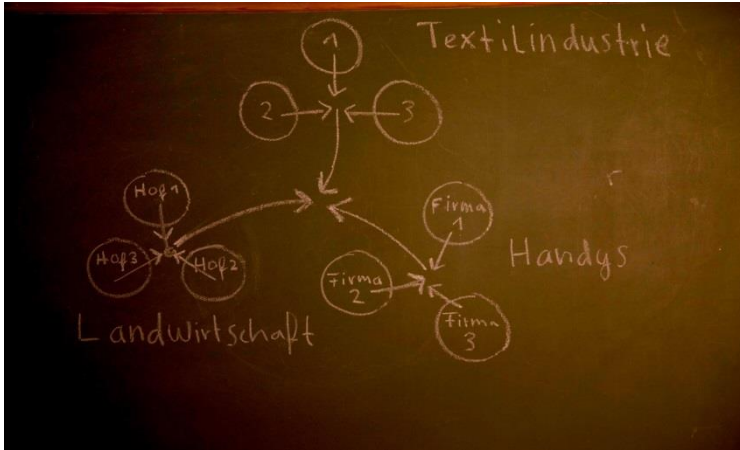 Textilindustrie
1
2
3
Hof 1
Hof 3
Hof 2
Landwirtschaft
Firma
1
Firma
2
Firma
3
Handys